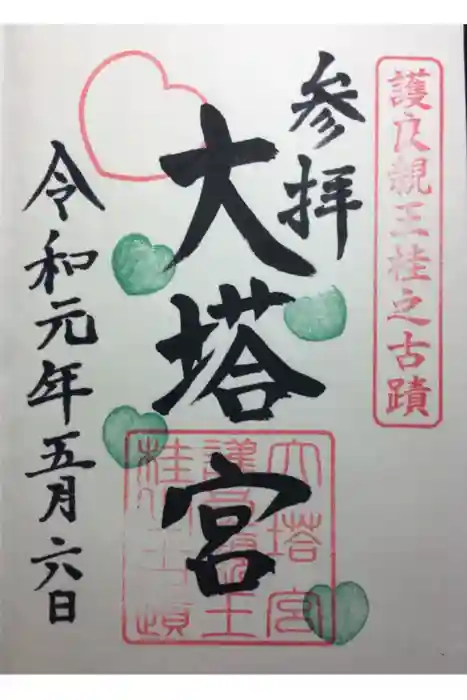 護良親王桂之古蹟
参拝
大塔宮
令和元年五月六日
大塔宮
護良親王
桂之古蹟